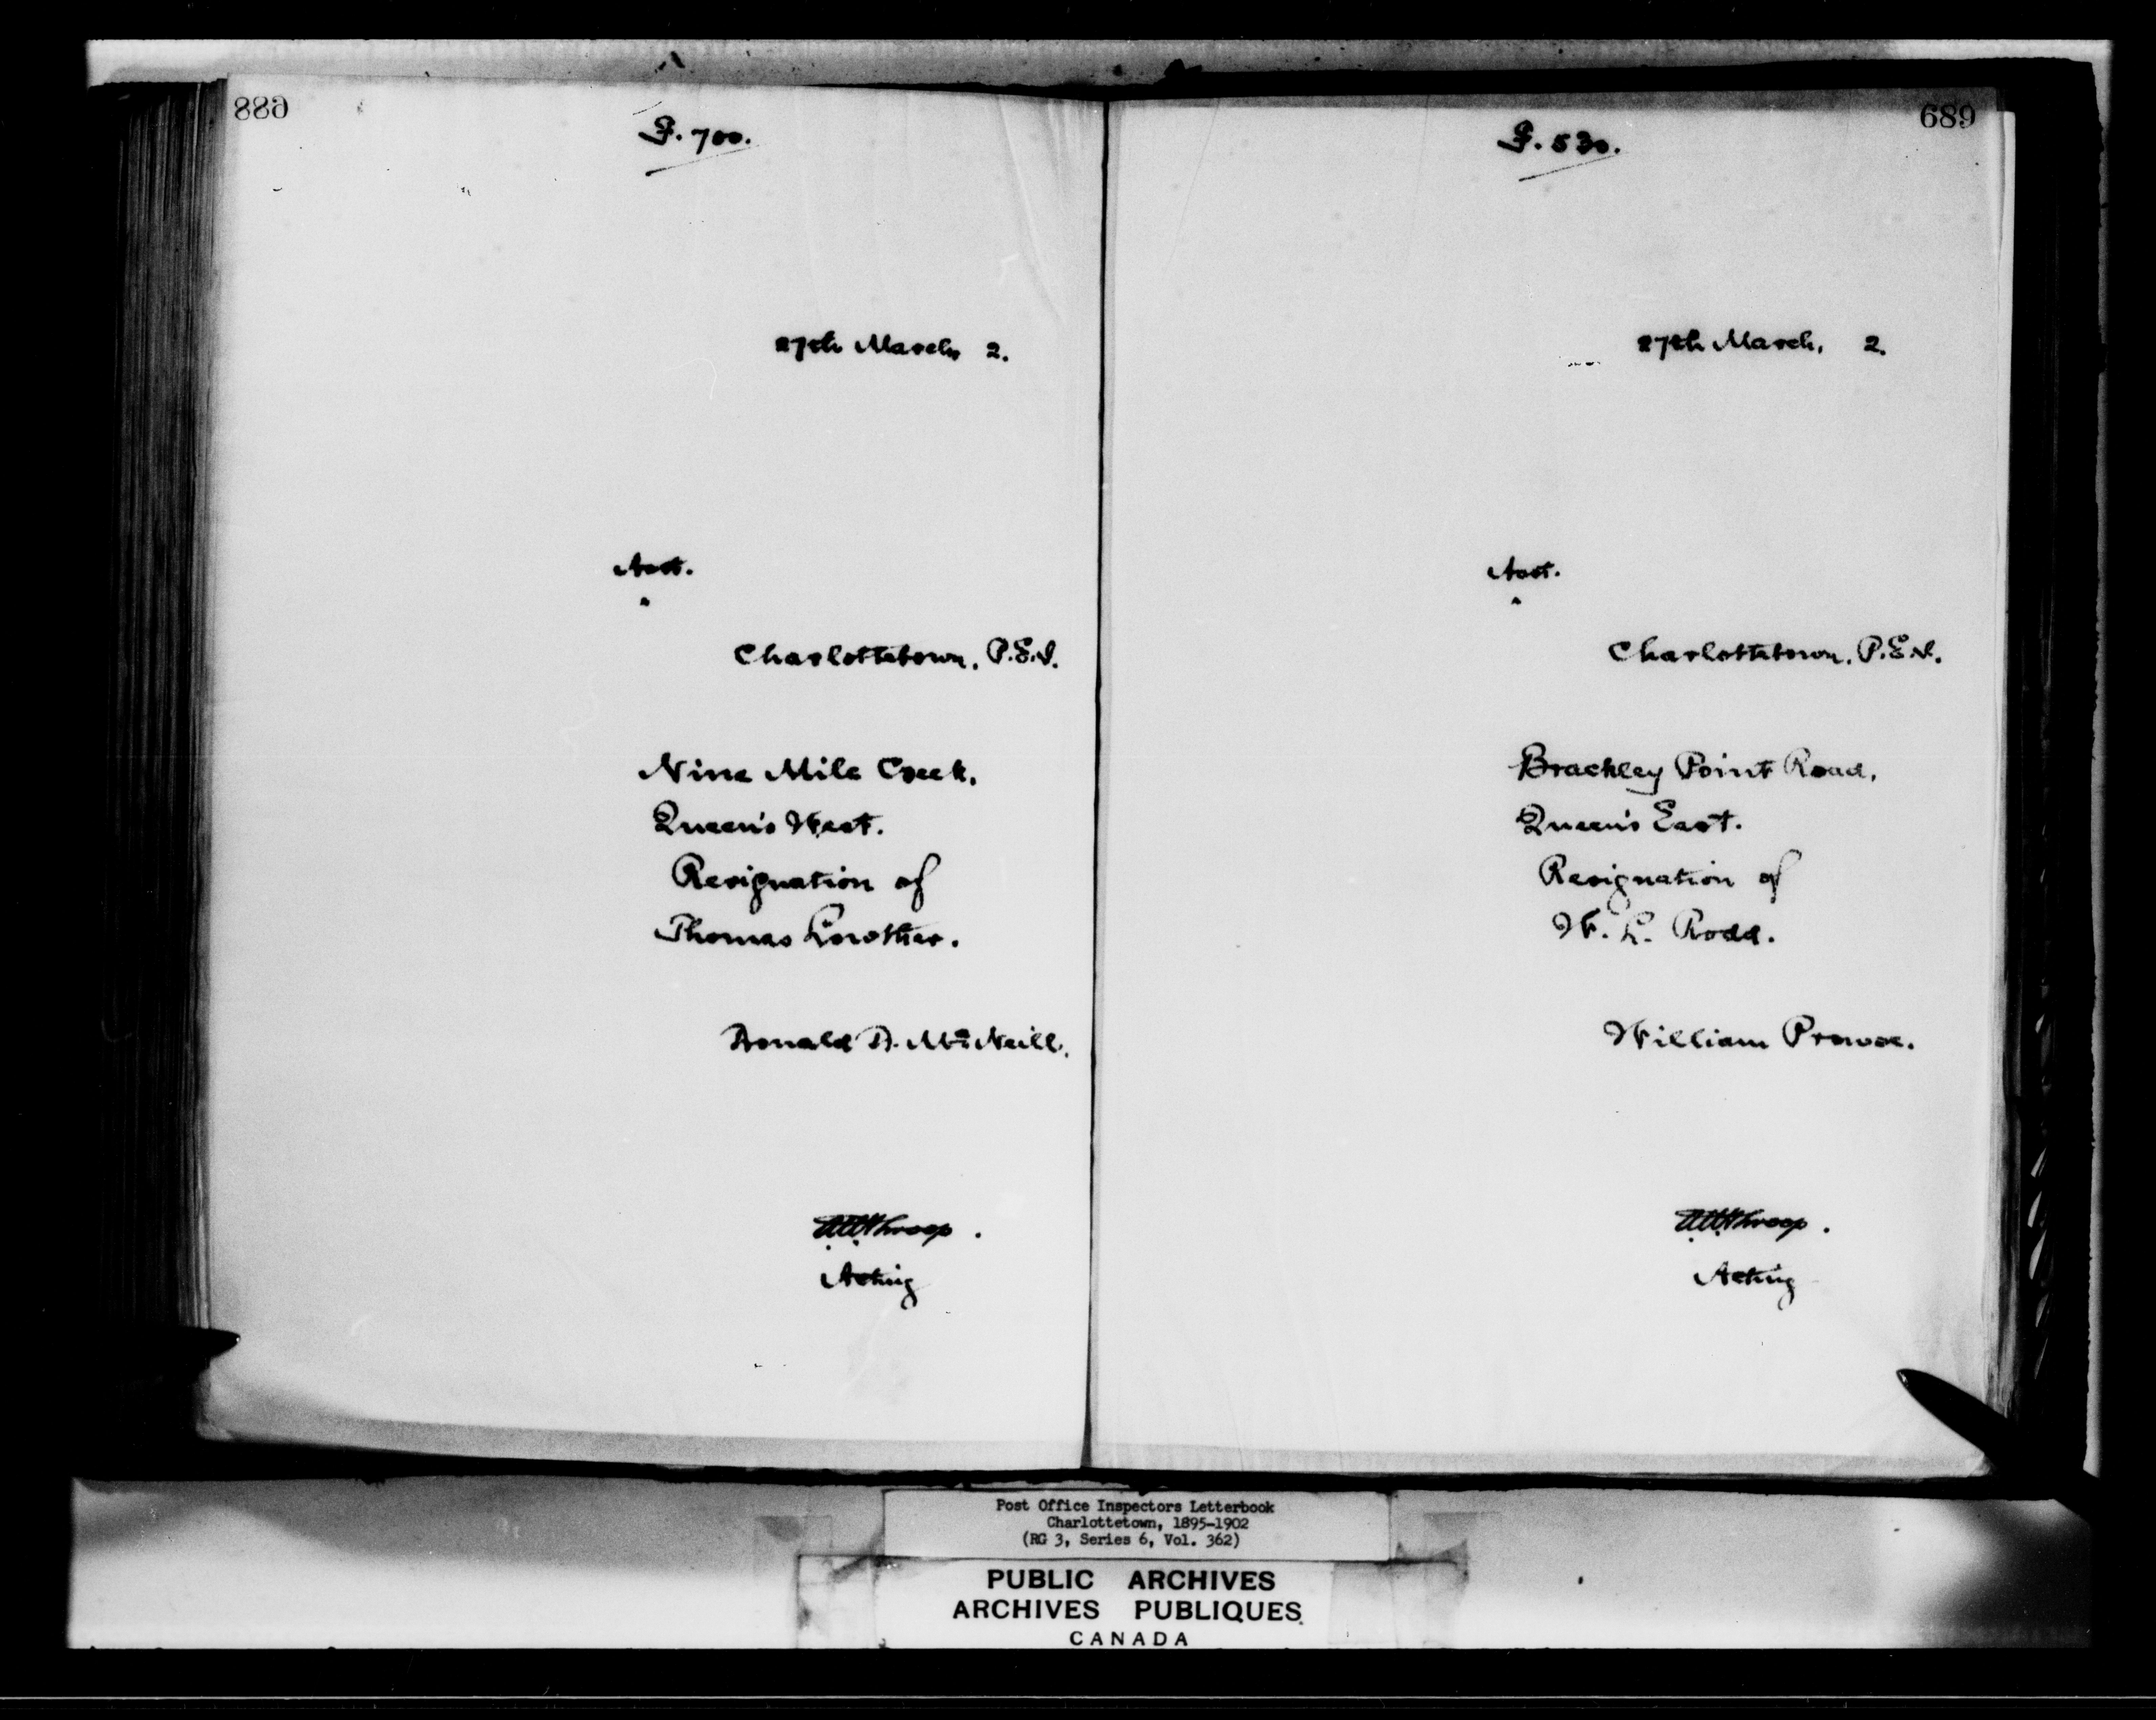 688
F. 700.
27th March, 2.
Asst.
Charlottetown, P.E.I.
Nine Mile Creek,
Queen's West.
Resignation of
Thomas Lowther.
Donald D. McNeill.
Acting
689
F. 530.
27th March, 2.
Asst.
Charlottetown, P.E.I.
Brackley Point Road,
Queen's East.
Resignation of
W. L. Rodd.
William Prowse.
Acting
Post Office Inspectors Letterbook
Charlottetown, 1895-1902
(RG 3, Series 6, Vol. 362)
PUBLIC ARCHIVES
ARCHIVES PUBLIQUES
CANADA